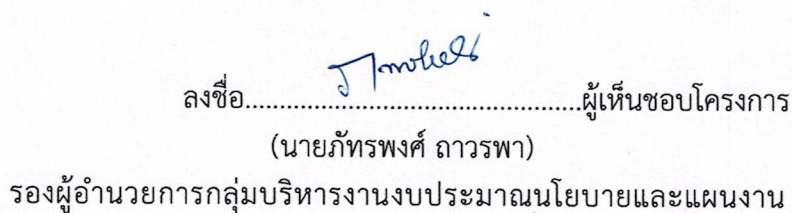 ลงชื่อ................................................ผู้เห็นชอบโครงการ
(นายภัทรพงศ์ ถาวรพา)
รองผู้อำนวยการกลุ่มบริหารงานงบประมาณนโยบายและแผนงาน